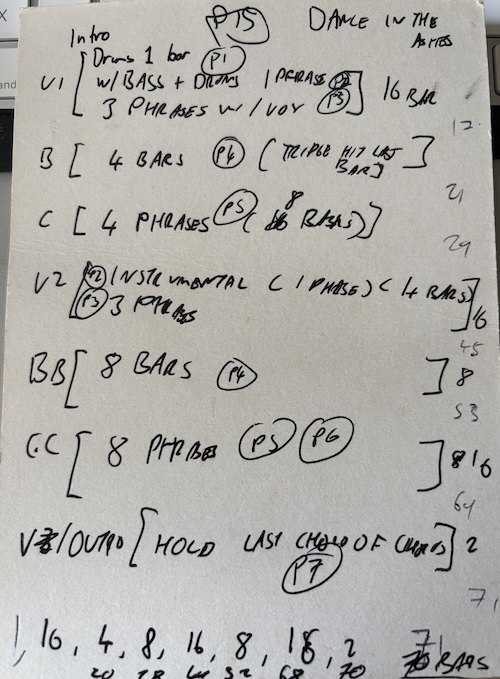 P15 DANCE IN THE ASHES
Intro
Drums 1 bar P1
V1 [ W/BASS + DRUMS 1 PHRASE P2
3 PHRASES W/VOX P3 ] 16 BAR
17
B [ 4 BARS P4 (TRIPLE HIT LAST BAR) ]
21
C [ 4 PHRASES P5 (8 BARS) ]
29
V2 [ P2 INSTRUMENTAL (1 PHASE) (4 BARS)
P3 3 PHRASES ] 16
45
BB [ 8 BARS P4 ] 8
53
CC [ 8 PHRASES P5 P6 ] 16
69
V3/OUTRO [ HOLD LAST CHORD OF CHORUS ] 2
P7
71
1, 16, 4, 8, 16, 8, 16, 2 71 BARS
20 28 44 52 68 70